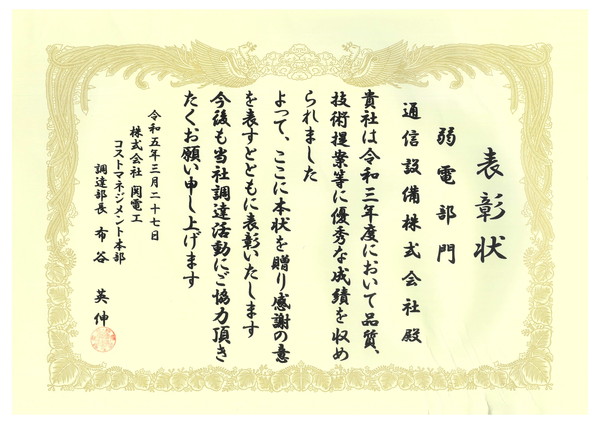 表彰状
弱電部門
通信設備株式会社殿
貴社は令和三年度において品質、
技術提案等に優秀な成績を収め
られました
よって、ここに本状を贈り感謝の意
を表すとともに表彰いたします
今後も当社調達活動にご協力頂き
たくお願い申し上げます
令和五年三月二十七日
株式会社 関電工
コストマネジメント本部
調達部長 布谷 英伸